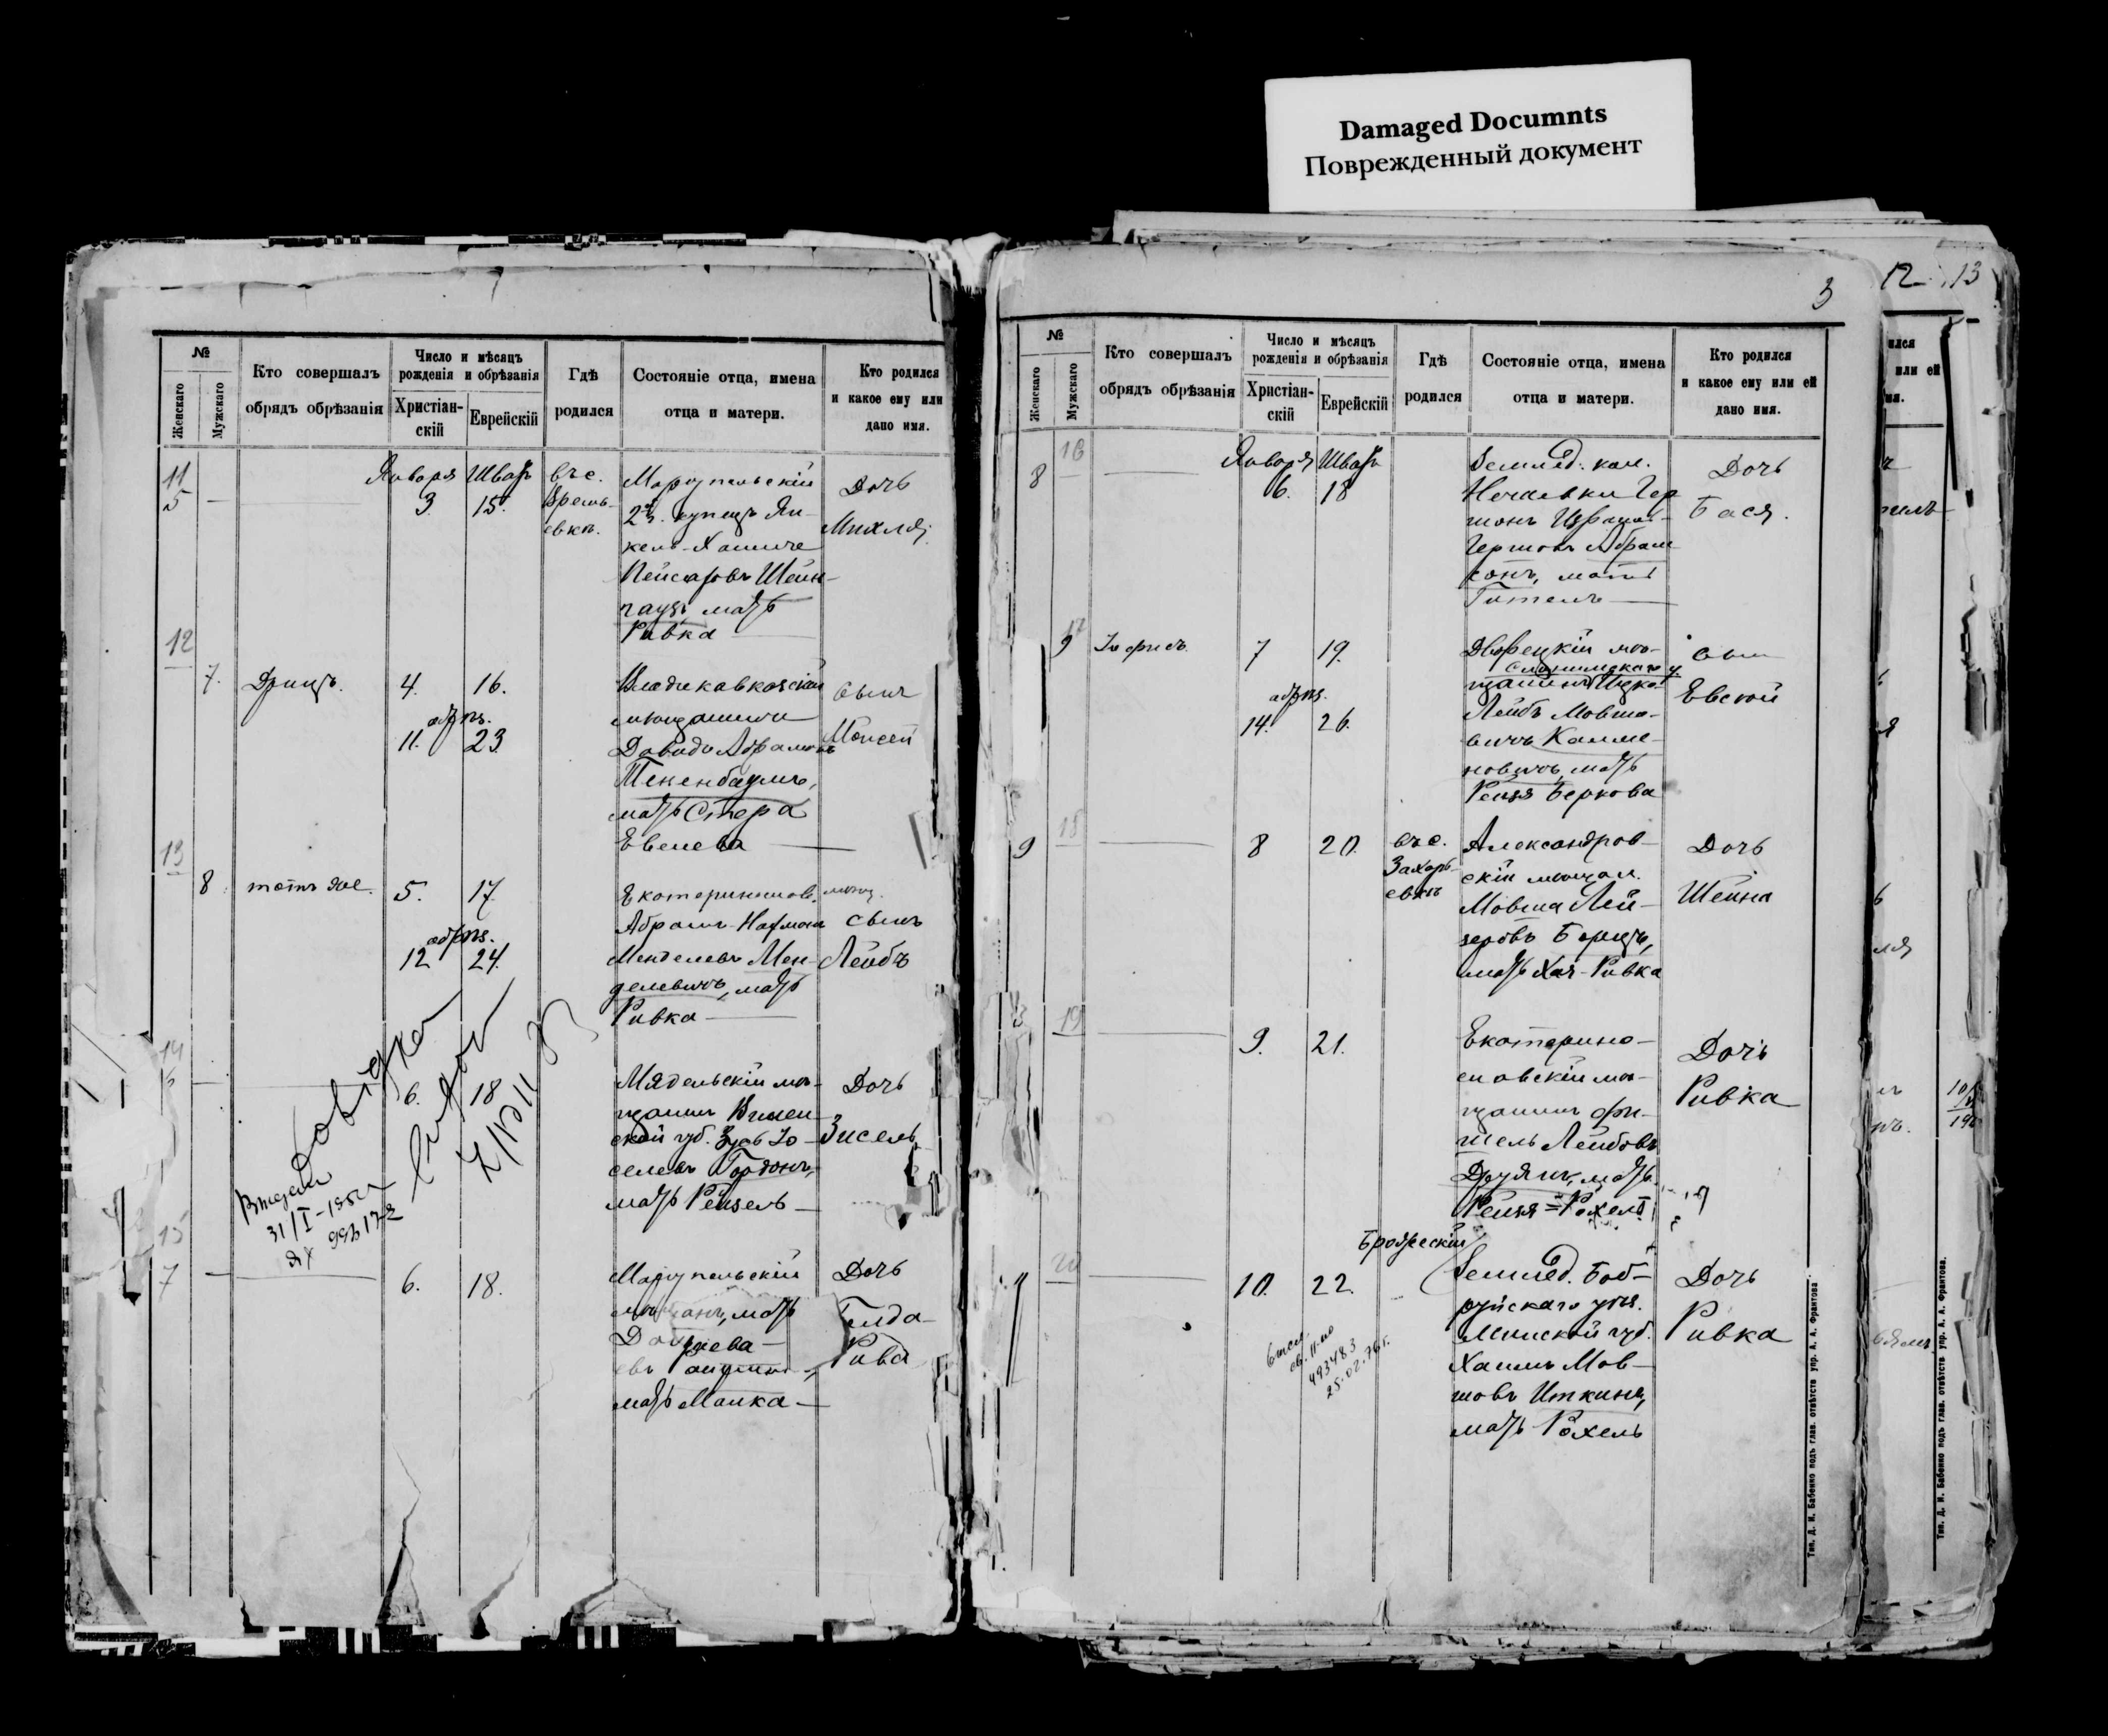 Damaged Documnts
Поврежденный документ
№
Женскаго
Мужскаго
Кто совершалъ
обрядъ обрѣзанія
Число и мѣсяцъ
рожденія и обрѣзанія
Христіан-
скій
Еврейскій
Гдѣ
родился
Состояніе отца, имена
отца и матери.
Кто родился
и какое ему или
дано имя.
11
5
Января
3
Шватъ
15.
въ с.
Времь-
евкѣ.
Маріупольскій
2й г. купецъ Ян-
кель-Хаимъ
Пейсаховъ Штейн-
гаузъ, мать
Ривка
Дочь
Михля
12
7.
Дрицъ.
4.
16.
обрѣз.
11.
23
Владикавказскій
мѣщанинъ
Давидъ Абрамовъ
Текенбаумъ,
мать Стера
Евелева
Сынъ
Моисей
13
8
тотъ же.
5.
17.
обрѣз.
12
24.
Екатеринослов. мѣщ.
Абрамъ-Нахманъ
Менделевъ Мен-
делевичъ, мать
Ривка
сынъ
Лейбъ
14
6.
18
Мядельскій мѣ-
щанинъ Вилен-
ской губ. Зусь Іо-
селевъ Гордонъ,
мать Рейзель
Дочь
Зисель
Довідка
31/I-1951
15
7
6.
18.
Маріупольскій
мать
мать Малка
Дочь
Голда-
Рива
3
№
Женскаго
Мужскаго
Кто совершалъ
обрядъ обрѣзанія
Число и мѣсяцъ
рожденія и обрѣзанія
Христіан-
скій
Еврейскій
Гдѣ
родился
Состояніе отца, имена
отца и матери.
Кто родился
и какое ему или ей
дано имя.
16
8
Января
6.
Шватъ
18
Землед. кол.
Нечаевки Гер
шонъ Израиль-
Гершовъ Абрам
сонъ, мать
Гитель
Дочь
Бася.
17
9
7
19.
обрѣз.
14.
26.
Дворецкій мѣ-
Слонимскаго у.
щанинъ Ицко-
Лейбъ Мовшо-
вичъ Калме-
новичъ, мать
Рейзя Беркова
Сынъ
Евсей
18
9
8
20.
въ с.
Захарь-
евкѣ
Александров-
скій мѣщан.
Мовша Лей-
зеровъ Борицъ,
мать Хая-Ривка
Дочь
Шейна
19
9.
21.
Екатерино-
славскій мѣ-
щанинъ Фи-
шель Лейбовъ
Друянъ, мать
Рейзя=Рохель
Дочь
Ривка
20
10.
22.
Броджескій
Землед. Боб-
руйскаго уѣз.
Минской губ.
Хаимъ Мов-
шовъ Иткинъ,
мать Рохель
Дочь
Ривка
493483
25.02.76г.
Тип. Д. И. Бабенко подъ глав. отвѣтств упр. А. А. Франтова
12
13
или ей
Тип. Д. И. Бабенко подъ глав. отвѣтств упр. А. А. Франтова.